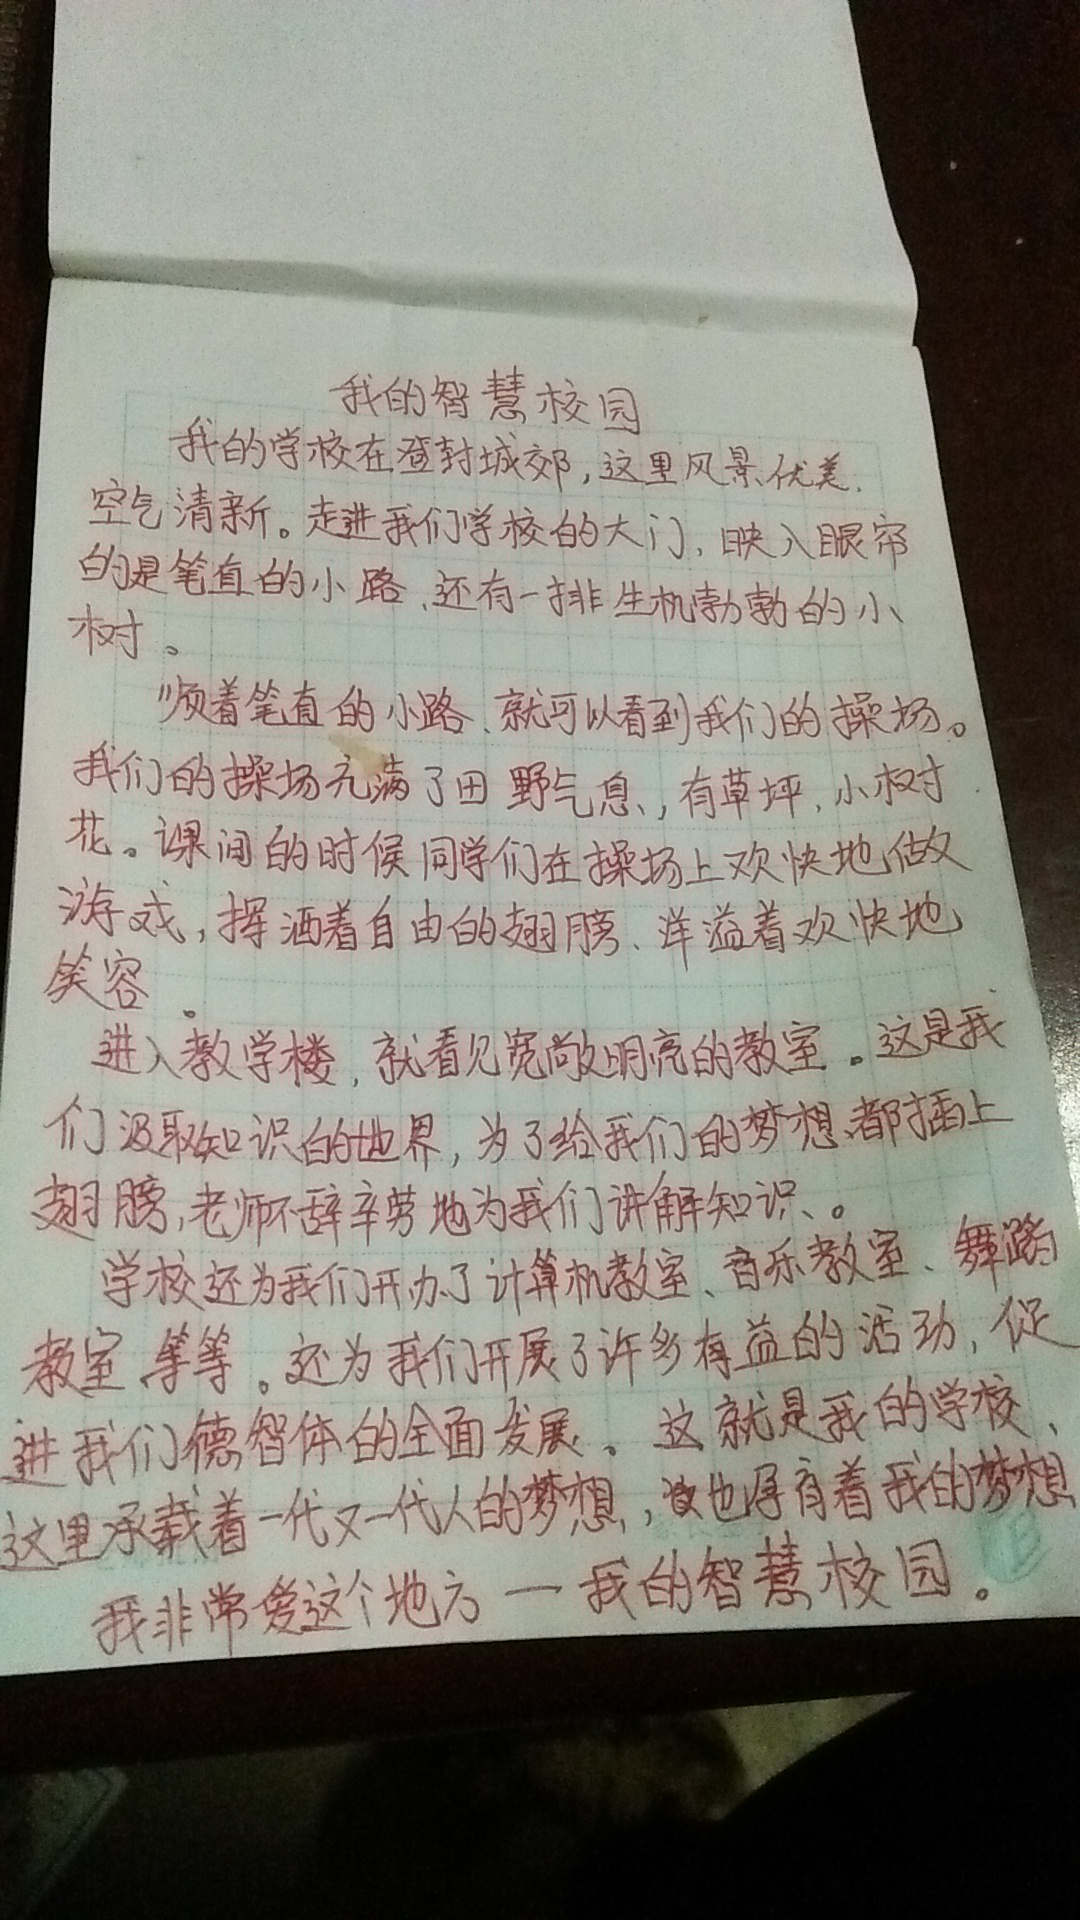 我的智慧校园
我的学校在登封城郊，这里风景优美、
空气清新。走进我们学校的大门，映入眼帘
的是笔直的小路、还有一排生机勃勃的小
树。
顺着笔直的小路、就可以看到我们的操场。
我们的操场充满了田野气息、，有草坪，小树、
花。课间的时候同学们在操场上欢快地做
游戏，挥洒着自由的翅膀、洋溢着欢快地
笑容。
进入教学楼，就看见宽敞明亮的教室。这是我
们汲取知识的世界，为了给我们的梦想都插上
翅膀，老师不辞辛劳地为我们讲解知识、。
学校还为我们开办了计算机教室、音乐教室、舞蹈
教室等等。还为我们开展了许多有益的活动，促
进我们德智体的全面发展。这就是我的学校、
这里承载着一代又一代人的梦想，也存有着我的梦想
我非常爱这个地方—我的智慧校园。